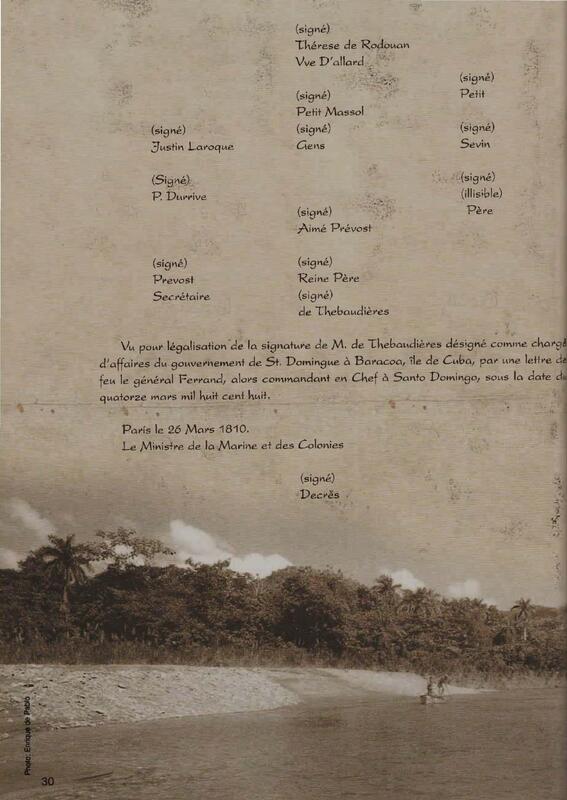 (signé)
Thérese de Rodouan
Vve D'allard
(signé)
Petit
(signé)
Petit Massol
(signé)
Justin Laroque
(signé)
Gens
(signé)
Sevin
(Signé)
P. Durrive
(signé)
(illisible)
Père
(signé)
Aimé Prévost
(signé)
Prevost
Secrétaire
(signé)
Reine Père
(signé)
de Thebaudières
Vu pour légalisation de la signature de M. de Thebaudières désigné comme chargé
d'affaires du gouvernement de St. Domingue à Baracoa, île de Cuba, par une lettre de
feu le général Ferrand, alors commandant en Chef à Santo Domingo, sous la date du
quatorze mars mil huit cent huit.
Paris le 26 Mars 1810.
Le Ministre de la Marine et des Colonies
(signé)
Decrès
Photo: Enrique de Pablo
30